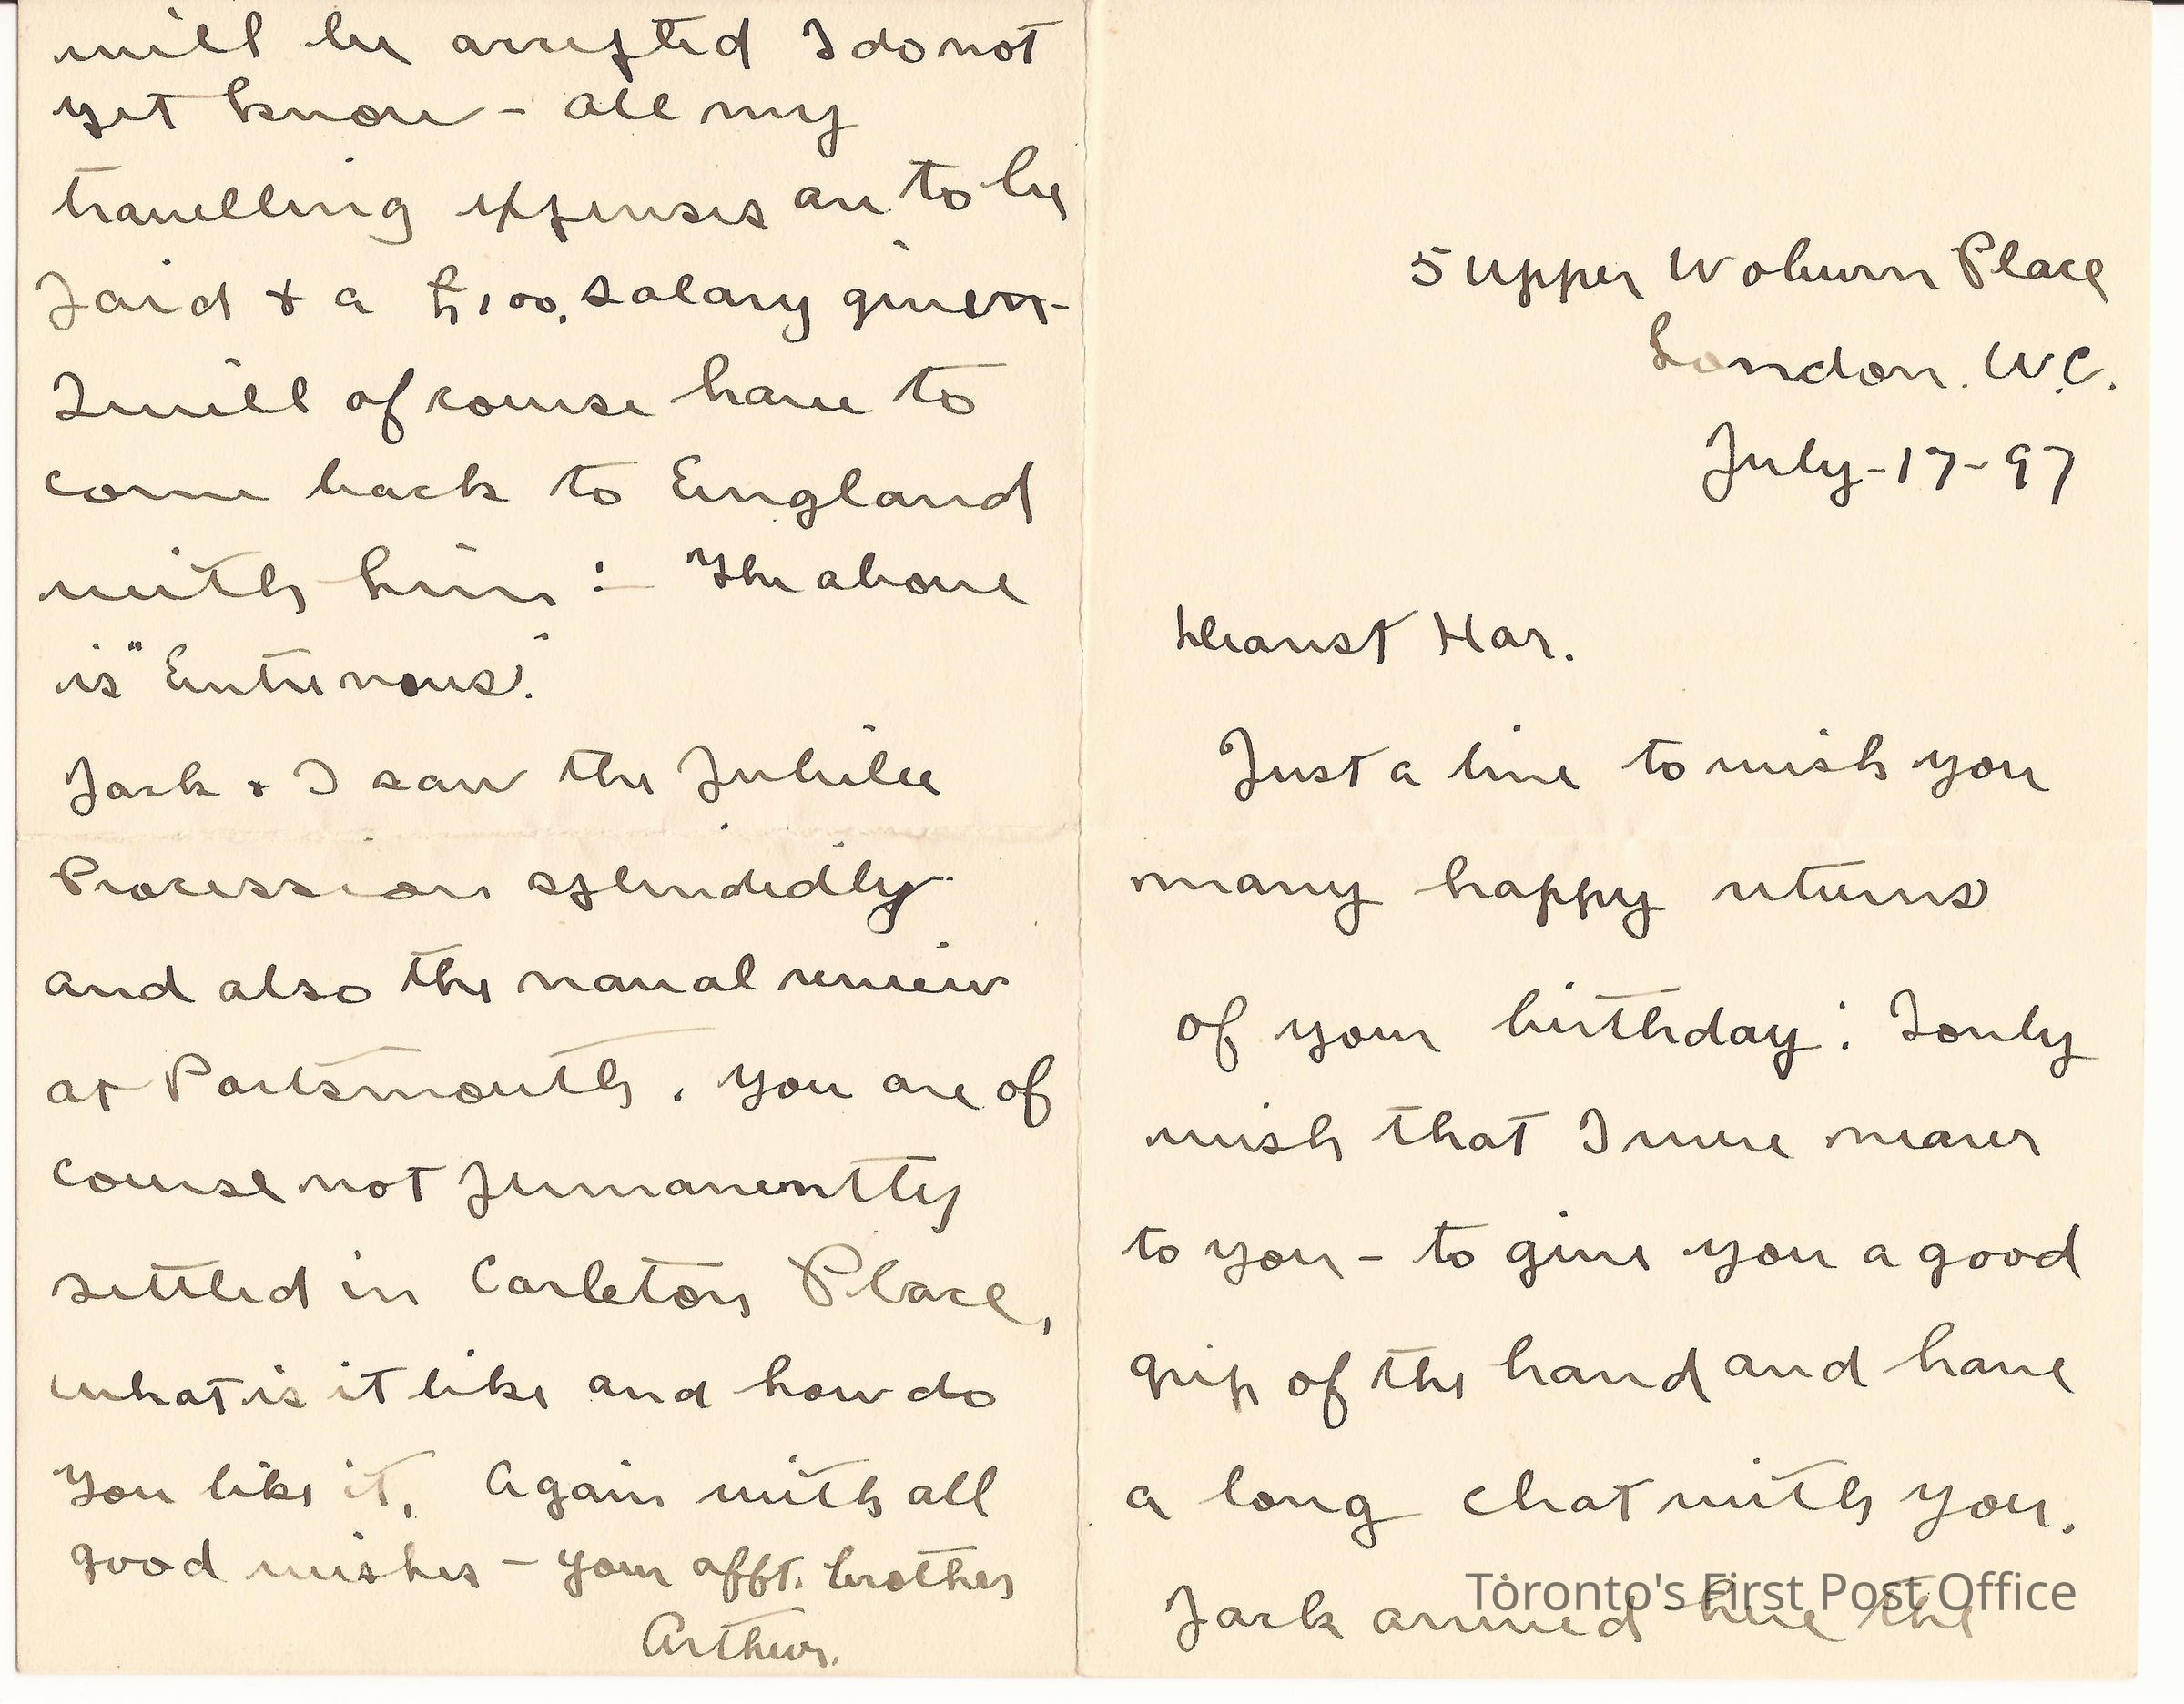 5 Upper Woburn Place
London. W.C.
July-17-97
Dearest Har.
Just a line to wish you
many happy returns
of your birthday: I only
wish that I were nearer
to you - to give you a good
grip of the hand and have
a long chat with you.
Jack arrived here the
Toronto's First Post Office
will be accepted I do not
yet know - all my
travelling expenses are to be
paid & a £100. salary given-
I will of course have to
come back to England
with him :- The above
is "Entre nous".
Jack & I saw the Jubilee
Procession splendidly
and also the naval review
at Portsmouth. You are of
course not permanently
settled in Carleton Place,
what is it like and how do
you like it. Again with all
good wishes - your afft. brother
Arthur.